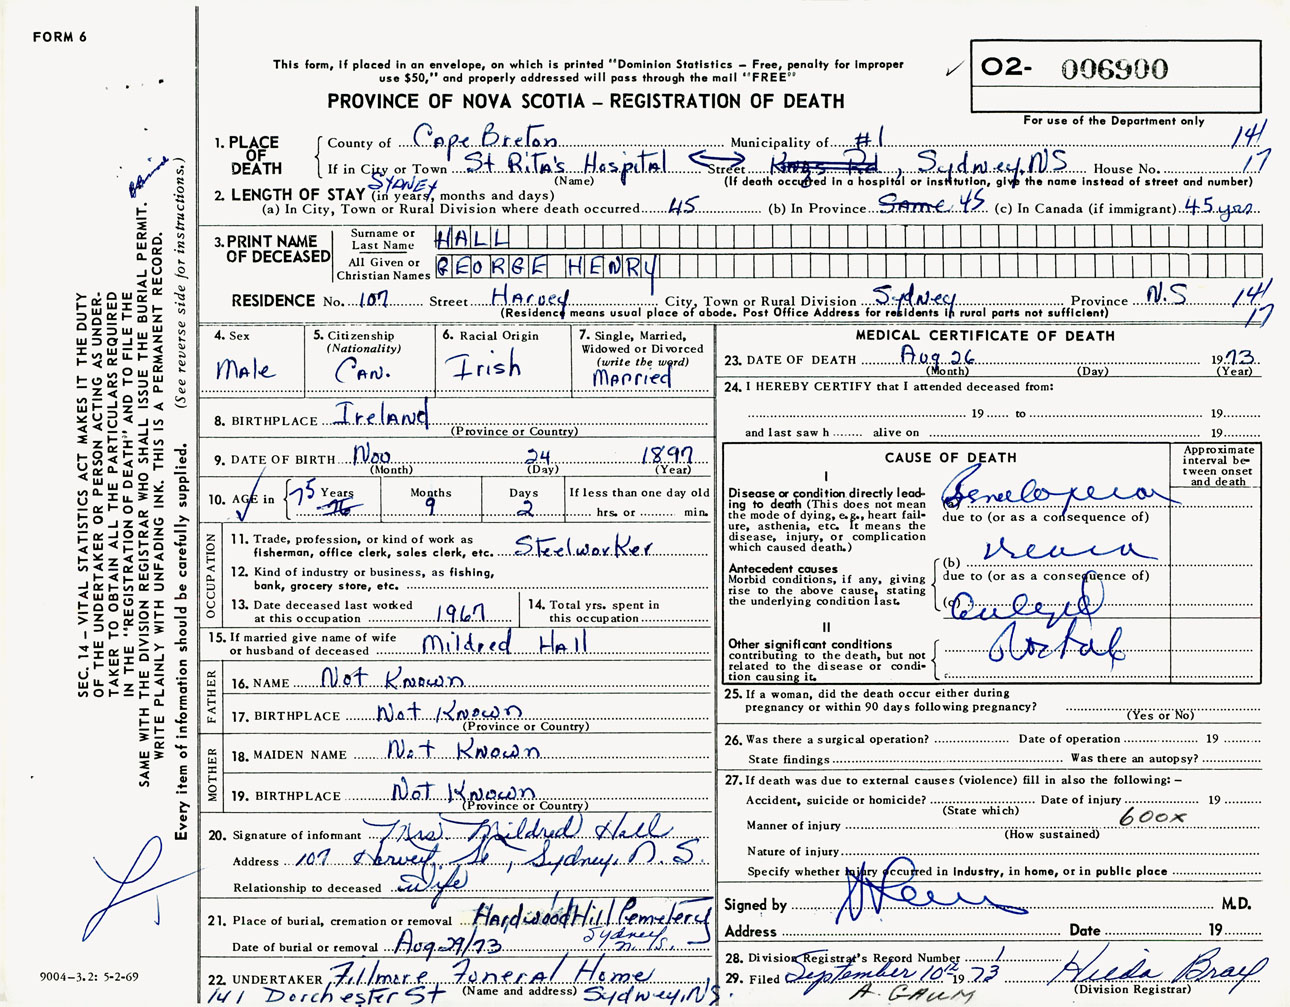 FORM 6
This form, if placed in an envelope, on which is printed "Dominion Statistics – Free, penalty for improper
use $50," and properly addressed will pass through the mail "FREE"
PROVINCE OF NOVA SCOTIA – REGISTRATION OF DEATH
✓ 02- 006900
For use of the Department only
SEC. 14 – VITAL STATISTICS ACT MAKES IT THE DUTY
OF THE UNDERTAKER OR PERSON ACTING AS UNDER-
TAKER TO OBTAIN ALL THE PARTICULARS REQUIRED
IN THE "REGISTRATION OF DEATH" AND TO FILE THE
SAME WITH THE DIVISION REGISTRAR WHO SHALL ISSUE THE BURIAL PERMIT.
WRITE PLAINLY WITH UNFADING INK. THIS IS A PERMANENT RECORD.
Every item of information should be carefully supplied. (See reverse side for instructions.)
1. PLACE OF DEATH
County of Cape Breton Municipality of #1 141
If in City or Town St Rita's Hospital Street Kings Rd, Sydney, NS House No. 17
(Name) (If death occurred in a hospital or institution, give the name instead of street and number)
SYDNEY
2. LENGTH OF STAY (in years, months and days)
(a) In City, Town or Rural Division where death occurred 45 (b) In Province Same 45 (c) In Canada (if immigrant) 45 yrs
3. PRINT NAME OF DECEASED
Surname or Last Name HALL
All Given or Christian Names GEORGE HENRY
RESIDENCE No. 107 Street Harvey City, Town or Rural Division Sydney Province N.S 141
(Residence means usual place of abode. Post Office Address for residents in rural parts not sufficient) 17
4. Sex Male
5. Citizenship (Nationality) CAN.
6. Racial Origin Irish
7. Single, Married, Widowed or Divorced (write the word) Married
8. BIRTHPLACE Ireland
(Province or Country)
9. DATE OF BIRTH Nov 24 1897
(Month) (Day) (Year)
10. AGE in 75 Years 76 Months 9 Days 2 If less than one day old
hrs. or min.
OCCUPATION
11. Trade, profession, or kind of work as
fisherman, office clerk, sales clerk, etc. Steelworker
12. Kind of industry or business, as fishing,
bank, grocery store, etc.
13. Date deceased last worked
at this occupation 1967
14. Total yrs. spent in
this occupation
15. If married give name of wife
or husband of deceased Mildred Hall
FATHER
16. NAME Not Known
17. BIRTHPLACE Not Known
(Province or Country)
MOTHER
18. MAIDEN NAME Not Known
19. BIRTHPLACE Not Known
(Province or Country)
20. Signature of informant Mrs Mildred Hall
Address 107 Harvey St, Sydney, N.S.
Relationship to deceased Wife
21. Place of burial, cremation or removal Hardwood Hill Cemetery
Sydney N.S.
Date of burial or removal Aug 29/73
22. UNDERTAKER Fillmore Funeral Home
(Name and address)
141 Dorchester St Sydney, NS.
MEDICAL CERTIFICATE OF DEATH
23. DATE OF DEATH Aug 26 1973
(Month) (Day) (Year)
24. I HEREBY CERTIFY that I attended deceased from:
19 to 19
and last saw h alive on 19
CAUSE OF DEATH
Approximate interval between onset and death
I
Disease or condition directly lead-
ing to death (This does not mean
the mode of dying, e.g., heart fail-
ure, asthenia, etc. It means the
disease, injury, or complication
which caused death.)
(a)
due to (or as a consequence of)
Antecedent causes
Morbid conditions, if any, giving
rise to the above cause, stating
the underlying condition last.
(b)
due to (or as a consequence of)
(c)
II
Other significant conditions
contributing to the death, but not
related to the disease or condi-
tion causing it.
25. If a woman, did the death occur either during
pregnancy or within 90 days following pregnancy?
(Yes or No)
26. Was there a surgical operation? Date of operation 19
State findings Was there an autopsy?
27. If death was due to external causes (violence) fill in also the following: –
Accident, suicide or homicide? Date of injury 19
(State which)
Manner of injury 600x
(How sustained)
Nature of injury
Specify whether injury occurred in industry, in home, or in public place
Signed by M.D.
Address Date 19
28. Division Registrar's Record Number
29. Filed September 10th 1973 Hilda Bray
(Division Registrar)
9004-3.2: 5-2-69